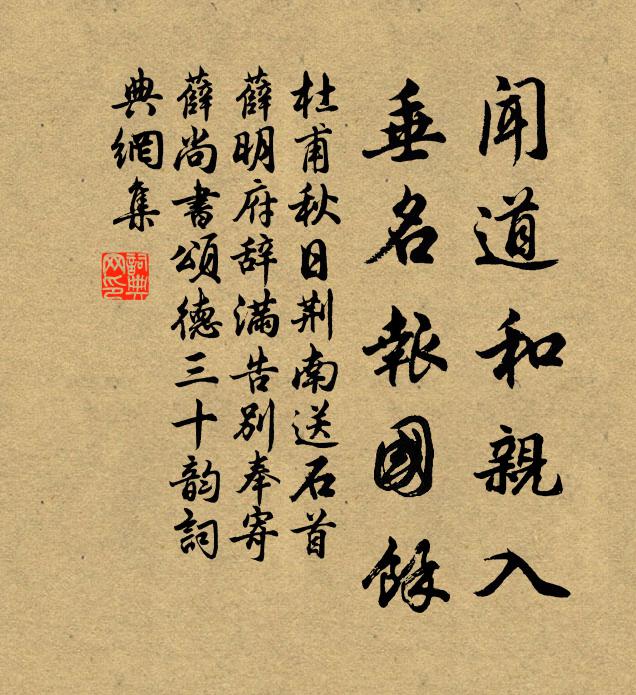 聞道和親入
垂名報國餘
杜甫秋日荆南送石首
薛明府辞滿告別奉寄
薛尚書頌德三十韵詞
典網集
詞典
网印